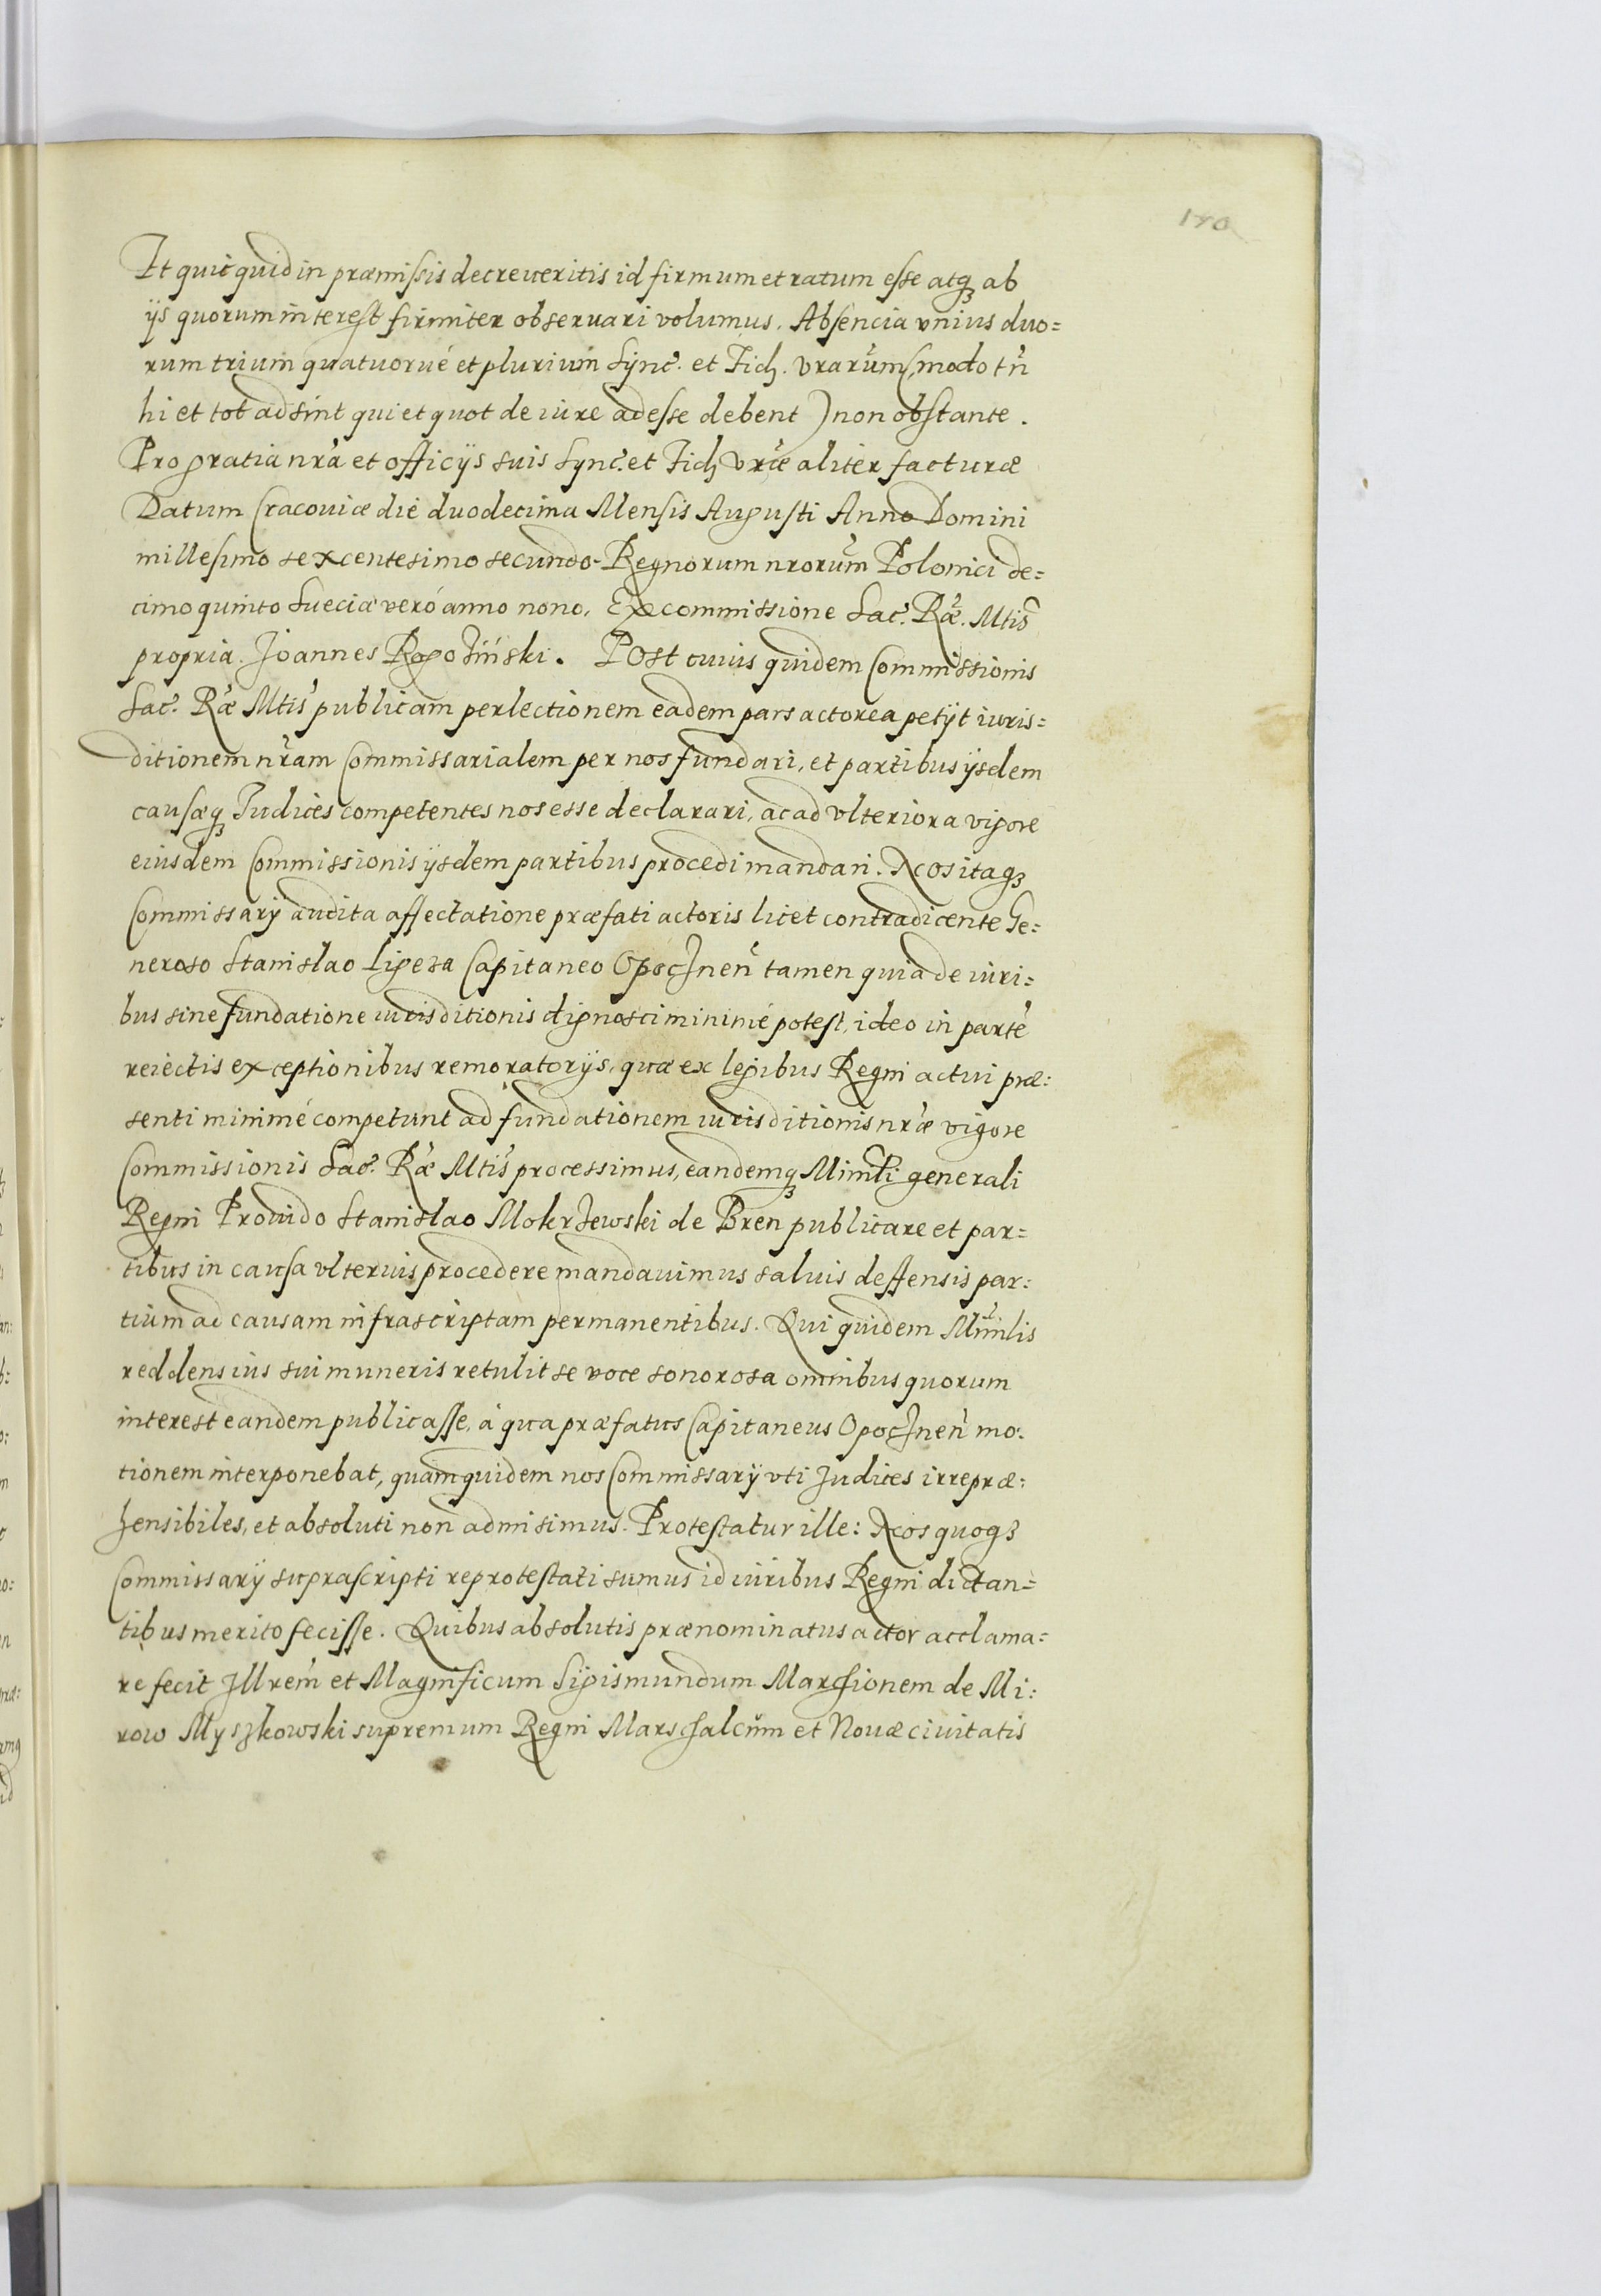 140
Et quicquid in præmissis decreueritis id firmum et ratum esse atq₃ ab
ijs quorum interest firmiter obseruari volumus. Absencia vnius duo=
rum trium quatuorué et plurium Sync. et Fid. vrarum (modo tñ
hi et tot adsint qui et quot de iure adesse debent) non obstante.
Pro gratia nrã et officijs suis Sync. et Fid vræ aliter facturæ
Datum Cracouiæ die duodecima Mensis Augusti Anno Domini
millesimo sexcentesimo secundo. Regnorum nrorum Polonici de=
cimo quinto Sueciæ veró anno nono. Ex commissione Sac. Ræ. Mtis
propria. Joannes Rogoziński. Post cuius quidem Commissionis
Sac. Ræ Mtis publicam perlectionem eadem pars actorea petijt iuris=
ditionem nram Commissarialem per nos fundari, et partibus ijsdem
causæq₃ Judices competentes nos esse declarari, ac ad vlteriora vigore
eiusdem Commissionis ijsdem partibus procedi mandari. Nos itaq₃
Commissarij audita affectatione præfati actoris licet contradicente Ge=
neroso Stanislao Ligeza Capitaneo Opocznen tamen quia de iuri=
bus sine fundatione iurisditionis dignosci minimé potest, ideo in parte
reiectis exceptionibus remoratorijs, quæ ex legibus Regni actui præ=
senti minimé competunt ad fundationem iurisditionis nræ vigore
Commissionis Sac. Ræ Mtis processimus, eandemq₃ Minrli generali
Regni Prouido Stanislao Mokrzewski de Bren publicare et par=
tibus in causa vlterius procedere mandauimus saluis deffensis par=
tium ad causam infrascriptam permanentibus. Qui quidem Minrlis
reddens ius sui muneris retulit se voce sonorosa omnibus quorum
interest eandem publicasse, á qua præfatus Capitaneus Opocznen mo=
tionem interponebat, quam quidem nos Commissarij vti Judices irrepræ=
hensibiles, et absoluti non admisimus. Protestatur ille: Nos quoq₃
Commissarij suprascripti reprotestati sumus id iuribus Regni dictan=
tibus merito fecisse. Quibus absolutis prænominatus actor acclama=
re fecit Jllrem et Magnificum Sigismundum Marchionem de Mi=
row Myszkowski supremum Regni Marschalcum et Nouæ ciuitatis